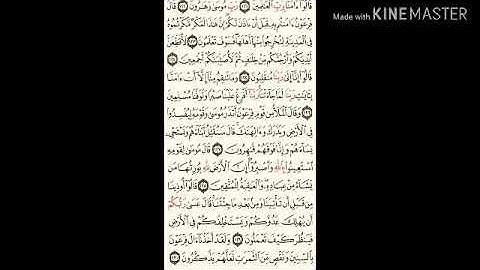 Made with KINEMASTER
قَالُوٓاْ ءَامَنَّا بِرَبِّ ٱلۡعَٰلَمِينَ ١٢١ رَبِّ مُوسَىٰ وَهَٰرُونَ ١٢٢ قَالَ
فِرۡعَوۡنُ ءَامَنتُم بِهِۦ قَبۡلَ أَنۡ ءَاذَنَ لَكُمۡۖ إِنَّ هَٰذَا لَمَكۡرٞ مَّكَرۡتُمُوهُ
فِي ٱلۡمَدِينَةِ لِتُخۡرِجُواْ مِنۡهَآ أَهۡلَهَاۖ فَسَوۡفَ تَعۡلَمُونَ ١٢٣ لَأُقَطِّعَنَّ
أَيۡدِيَكُمۡ وَأَرۡجُلَكُم مِّنۡ خِلَٰفٖ ثُمَّ لَأُصَلِّبَنَّكُمۡ أَجۡمَعِينَ ١٢٤
قَالُوٓاْ إِنَّآ إِلَىٰ رَبِّنَا مُنقَلِبُونَ ١٢٥ وَمَا تَنقِمُ مِنَّآ إِلَّآ أَنۡ ءَامَنَّا
بِـَٔايَٰتِ رَبِّنَا لَمَّا جَآءَتۡنَاۚ رَبَّنَآ أَفۡرِغۡ عَلَيۡنَا صَبۡرٗا وَتَوَفَّنَا مُسۡلِمِينَ
١٢٦ وَقَالَ ٱلۡمَلَأُ مِن قَوۡمِ فِرۡعَوۡنَ أَتَذَرُ مُوسَىٰ وَقَوۡمَهُۥ لِيُفۡسِدُواْ
فِي ٱلۡأَرۡضِ وَيَذَرَكَ وَءَالِهَتَكَۚ قَالَ سَنُقَتِّلُ أَبۡنَآءَهُمۡ وَنَسۡتَحۡيِۦ
نِسَآءَهُمۡ وَإِنَّا فَوۡقَهُمۡ قَٰهِرُونَ ١٢٧ قَالَ مُوسَىٰ لِقَوۡمِهِ
ٱسۡتَعِينُواْ بِٱللَّهِ وَٱصۡبِرُوٓاْۖ إِنَّ ٱلۡأَرۡضَ لِلَّهِ يُورِثُهَا مَن
يَشَآءُ مِنۡ عِبَادِهِۦۖ وَٱلۡعَٰقِبَةُ لِلۡمُتَّقِينَ ١٢٨ قَالُوٓاْ أُوذِينَا
مِن قَبۡلِ أَن تَأۡتِيَنَا وَمِنۢ بَعۡدِ مَا جِئۡتَنَاۚ قَالَ عَسَىٰ رَبُّكُمۡ
أَن يُهۡلِكَ عَدُوَّكُمۡ وَيَسۡتَخۡلِفَكُمۡ فِي ٱلۡأَرۡضِ
فَيَنظُرَ كَيۡفَ تَعۡمَلُونَ ١٢٩ وَلَقَدۡ أَخَذۡنَآ ءَالَ فِرۡعَوۡنَ
بِٱلسِّنِينَ وَنَقۡصٖ مِّنَ ٱلثَّمَرَٰتِ لَعَلَّهُمۡ يَذَّكَّرُونَ ١٣٠